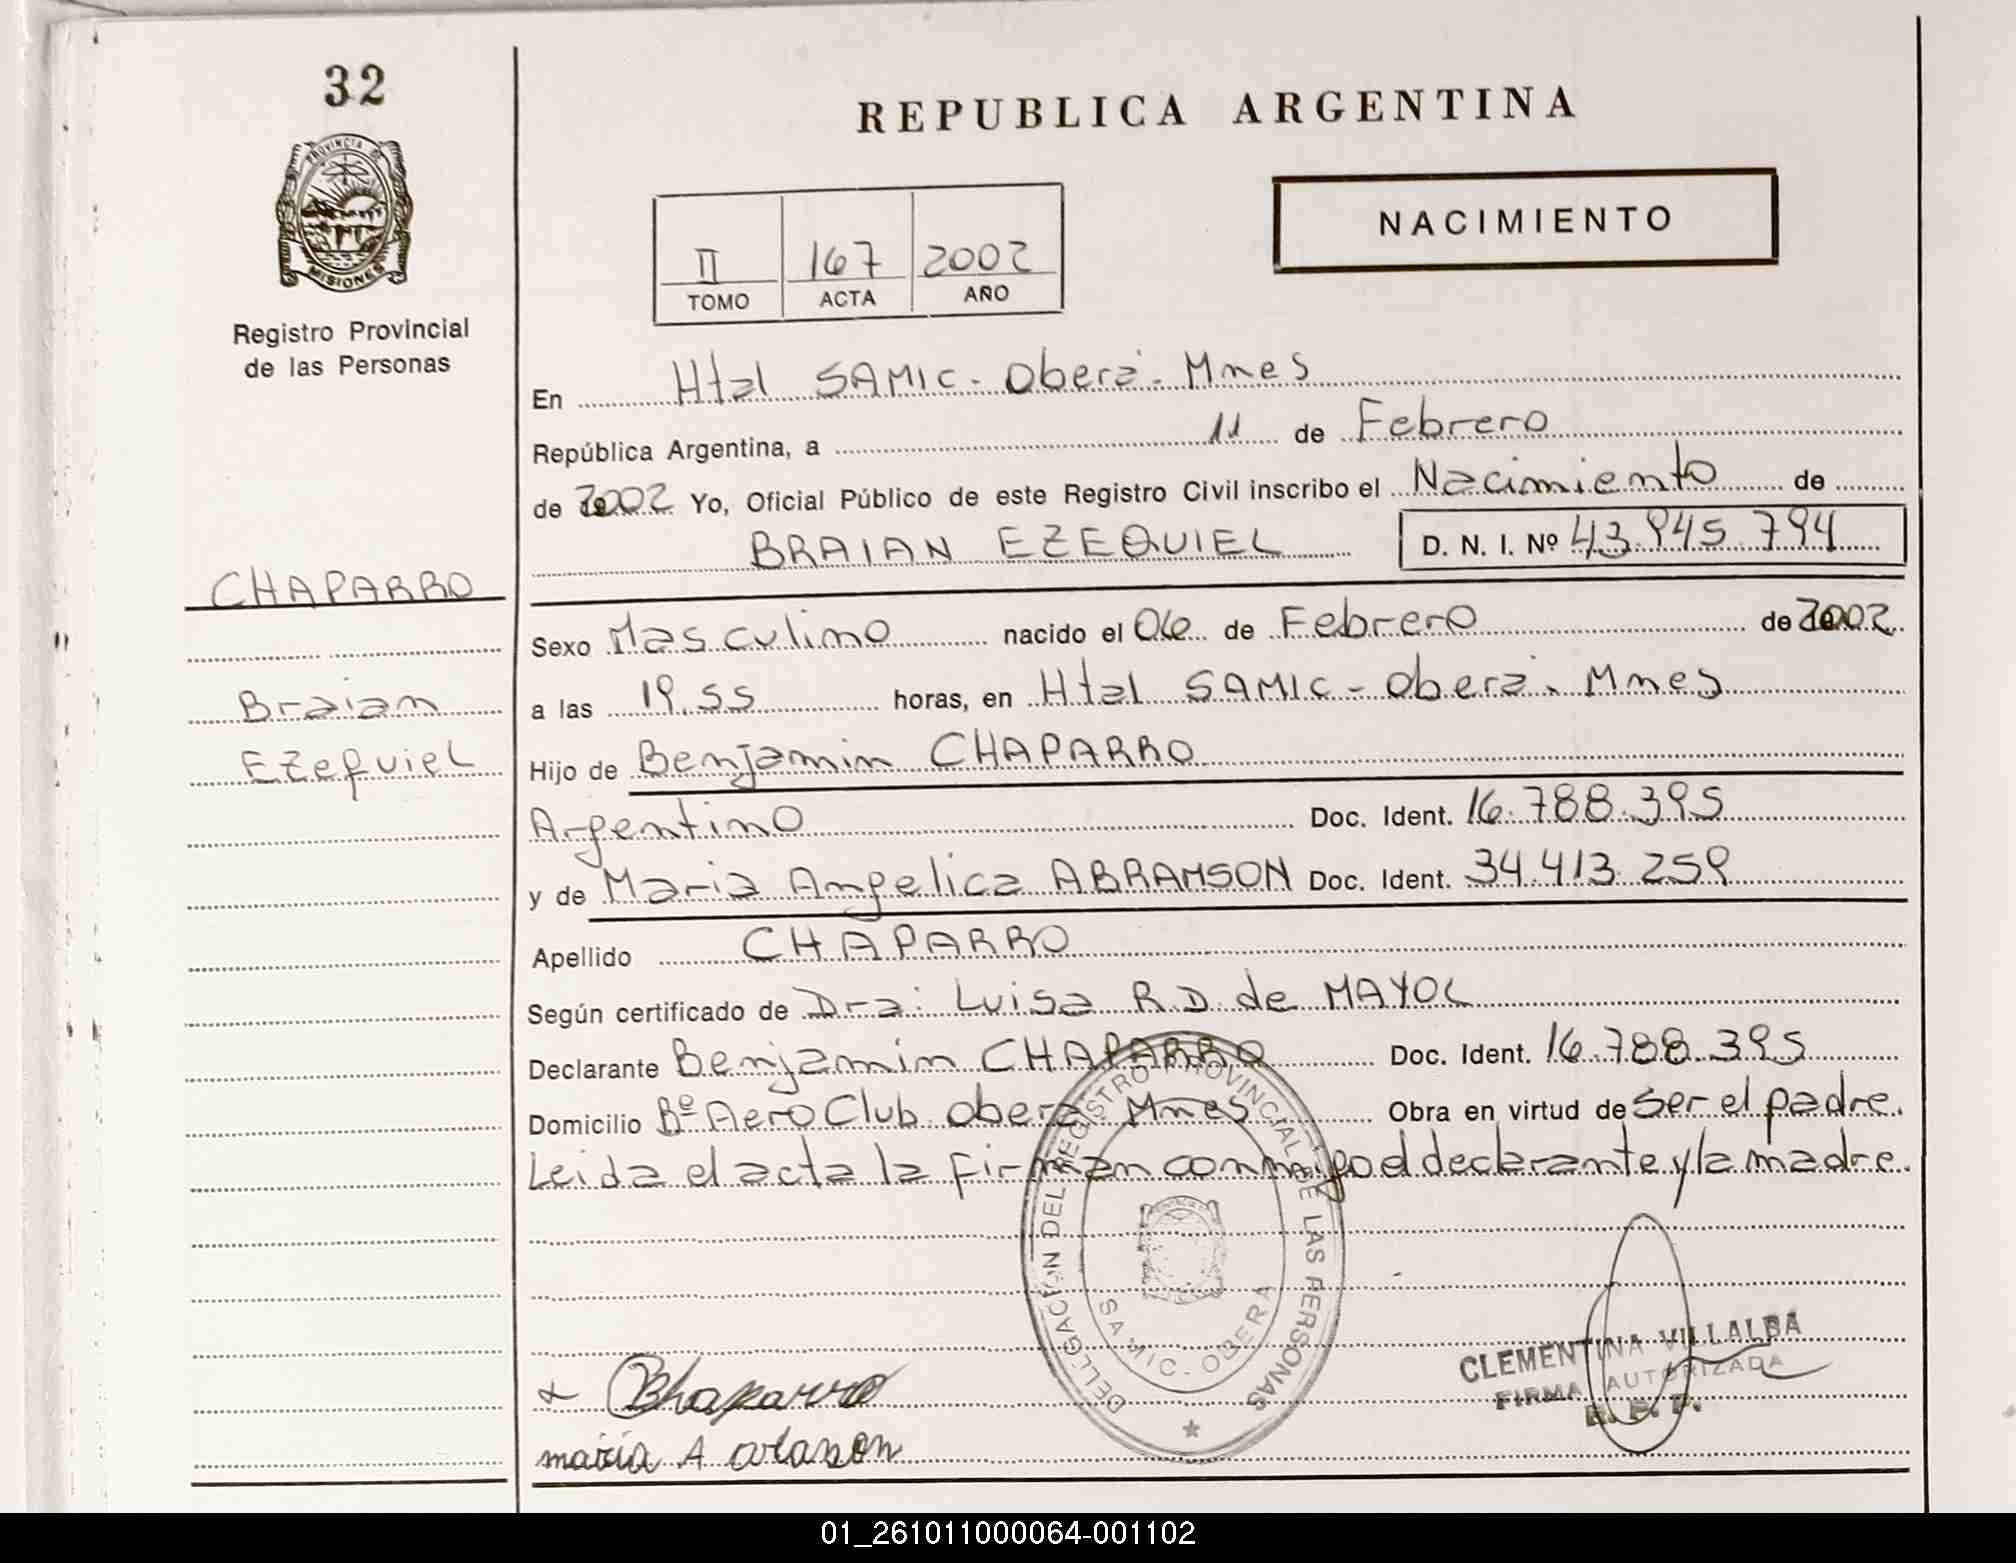 32
PROVINCIA DE
MISIONES
Registro Provincial
de las Personas
CHAPARRO
Braian
Ezequiel
REPUBLICA ARGENTINA
NACIMIENTO
II 167 2002
TOMO ACTA AÑO
En Htal SAMIC - Oberá - Mnes
República Argentina, a 11 de Febrero
de 2002 Yo, Oficial Público de este Registro Civil inscribo el Nacimiento de
BRAIAN EZEQUIEL D. N. I. Nº 43.945.794
Sexo Masculino nacido el 06 de Febrero de 2002
a las 19.55 horas, en Htal SAMIC - Oberá - Mnes
Hijo de Benjamin CHAPARRO
Argentino Doc. Ident. 16.788.395
y de Maria Angelica ABRAMSON Doc. Ident. 34.413.259
Apellido CHAPARRO
Según certificado de Dra: Luisa R.D. de MAYOL
Declarante Benjamin CHAPARRO Doc. Ident. 16.788.395
Domicilio Bº Aero Club Oberá Mnes Obra en virtud de Ser el padre.
Leida el acta la firman conmigo el declarante y la madre.
DELEGACION DEL REGISTRO PROVINCIAL DE LAS PERSONAS
SAMIC - OBERA
CLEMENTINA VILLALBA
FIRMA AUTORIZADA
BChaparro
maria A
01_261011000064-001102